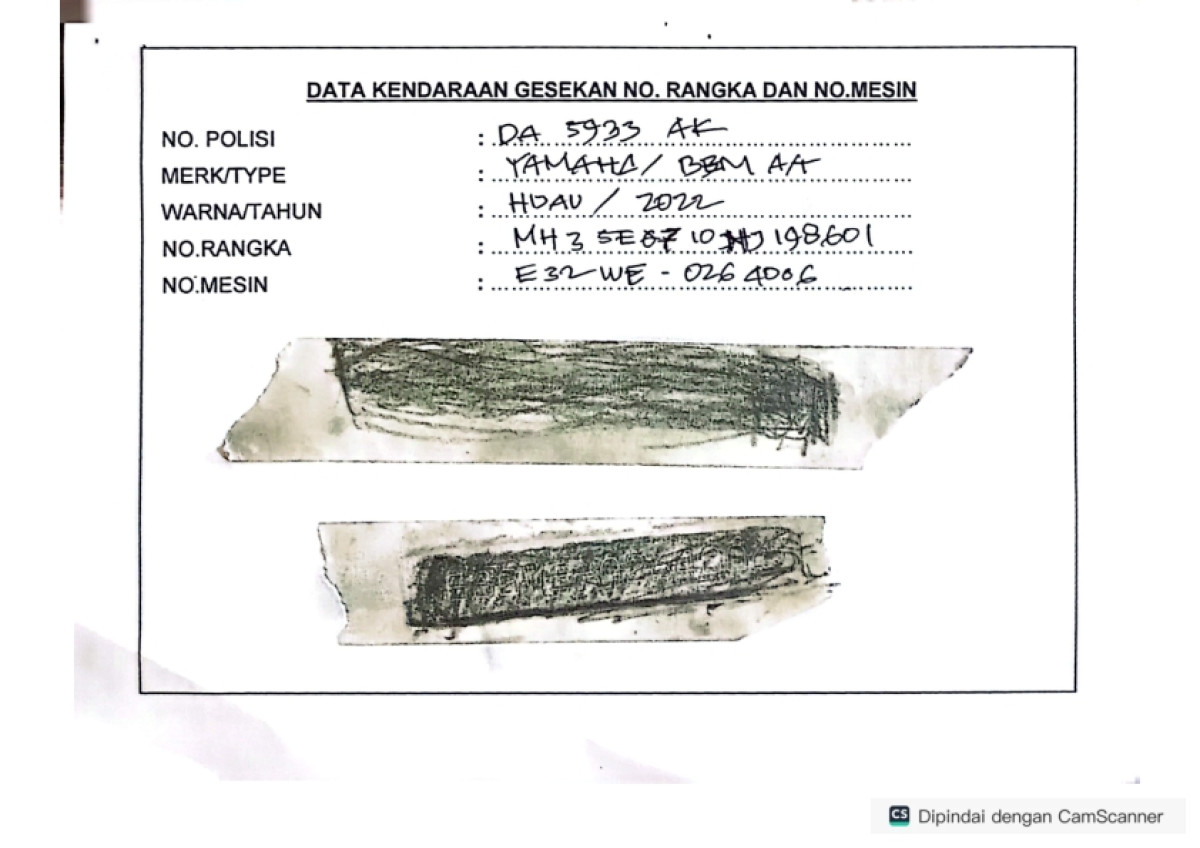 DATA KENDARAAN GESEKAN NO. RANGKA DAN NO.MESIN
NO. POLISI : DA 5933 AK
MERK/TYPE : YAMAHA / BBM A/T
WARNA/TAHUN : HIJAU / 2022
NO.RANGKA : MH3 SE 10 198601
NO.MESIN : E32WE - 0264006
CS Dipindai dengan CamScanner